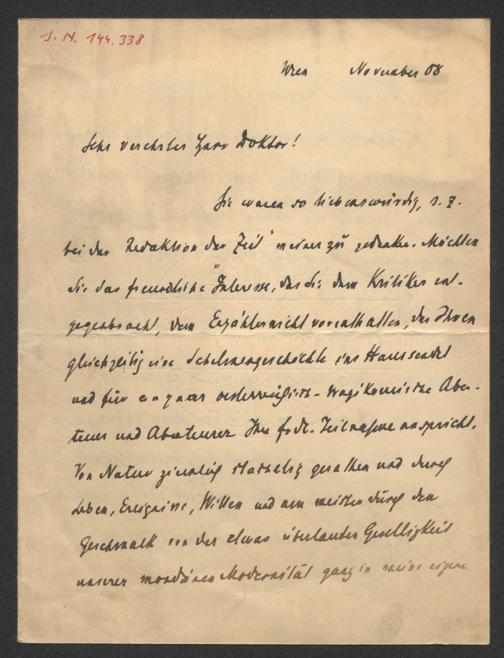 J. N. 144.338
Wien November 08
Sehr verehrter Herr Doktor!
Sie waren so liebenswürdig, s. Z.
bei der Redaktion der „Zeit" meiner zu gedenken. Möchten
Sie das freundliche Interesse, das Sie dem Kritiker ent-
gegenbracht, dem Erzähler nicht vorenthalten, der Ihnen
gleichzeitig eine Schelmengeschichte ins Haus sendet
und für ein paar oesterreichisch-tragikomische Aben-
teuer und Abenteurer Ihre frdl. Teilnahme anspricht.
Von Natur ziemlich stachelig gerathen und durch
Leben, Ereignisse, Willen und am meisten durch den
Geschmack von der etwas überlauten Geselligkeit
unserer mondänen Modernität ganz in meine eigene